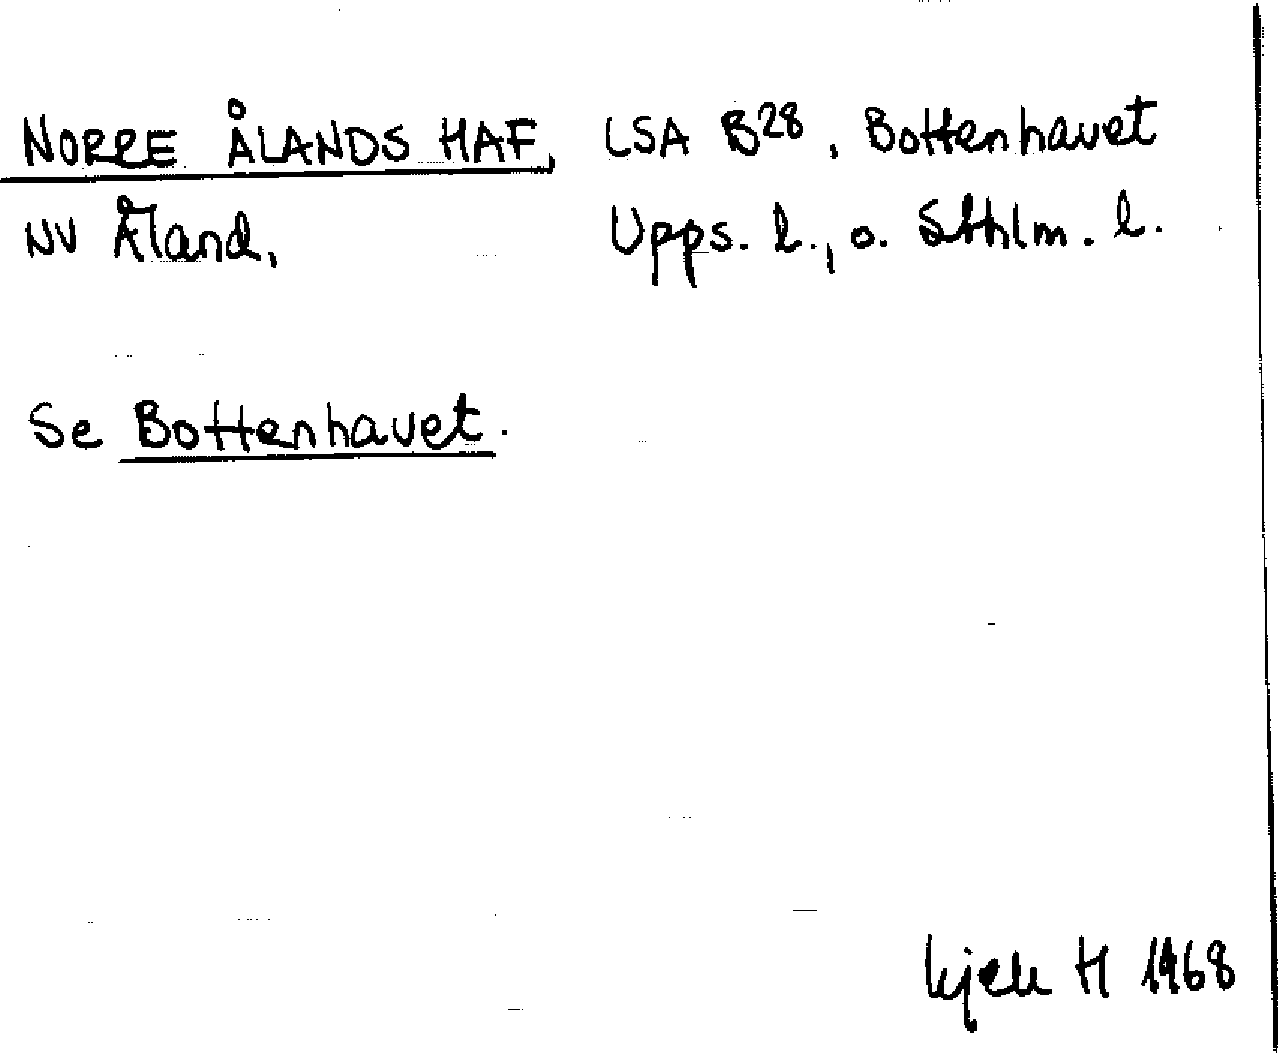 NORRE ÅLANDS HAF, LSA B28, Bottenhavet
NV Åland, Upps. l., o. Sthlm. l.
Se Bottenhavet.
Kjell H 1968